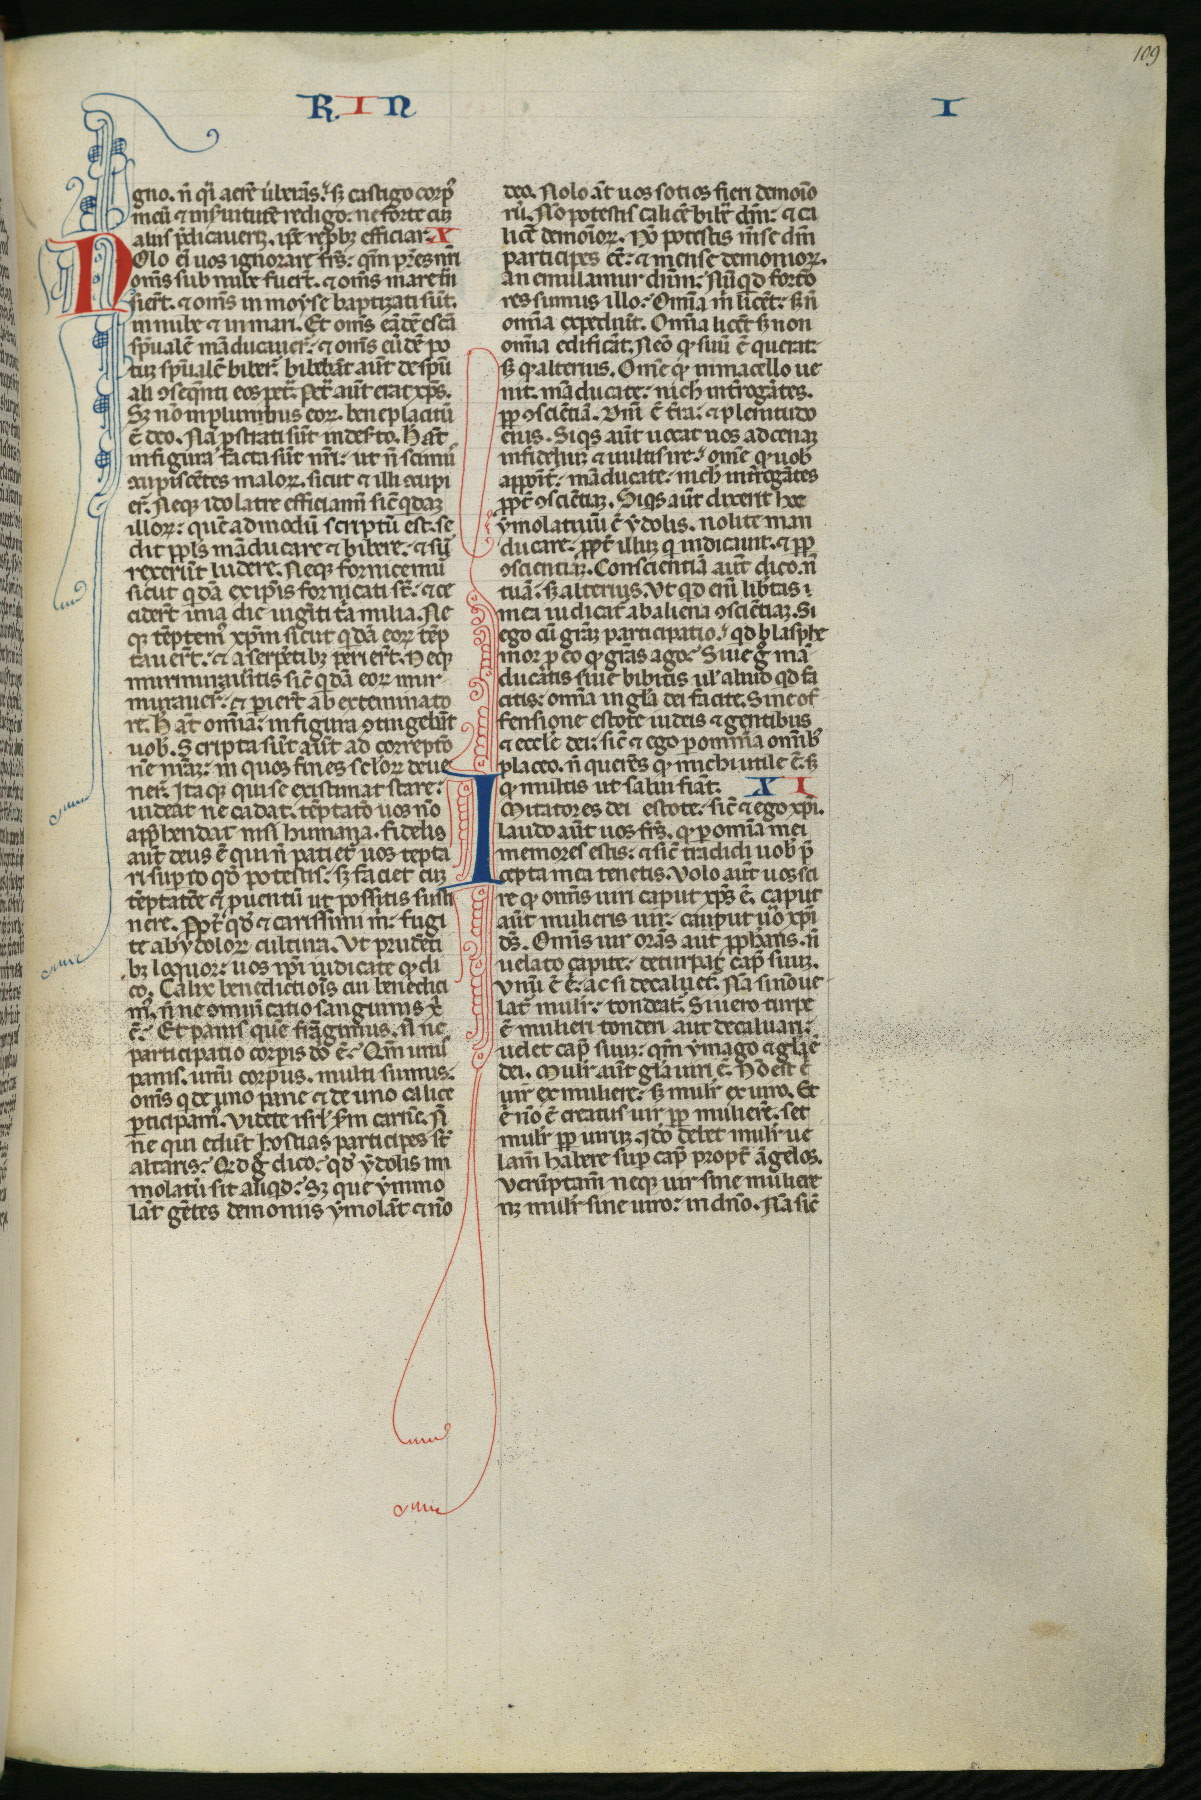 109
RIN I
gno. n̄ q̄i aerē ūberās. sꝫ castigo corp̄
meū ⁊ in s̄uitutē redigo: ne forte cuꝫ
aliis p̄dicauerī. ip̄e rep̄bꝫ efficiar. X
Nolo ēi uos ignorare fr̄s: qm̄ pr̄es nr̄i
om̄s sub nube fuerūt. ⁊ om̄s mare tn̄
sierūt. ⁊ om̄s in moyse baptizati sūt.
in nube ⁊ in mari. Et om̄s eādē escā
sp̄ualē māducauer̄t: ⁊ om̄s eūdē po
tuꝫ sp̄ualē biber̄t. bibebāt aūt de sp̄u
ali ꝯseq̄nti eos pet̄. Pet̄ aūt erat xp̄s.
Sꝫ nō in plurībus eoꝝ. beneplacitū
ē deo. Nā ꝓstrati sūt in des̄to. Hāt̄
in figura facta sūt nr̄i. ut n̄ scimū
ꝯcupiscētes maloꝝ. sicut ⁊ illi ꝯcupi
er̄t. Neqꝫ idolatre efficiamī sic̄ q̄daꝫ
illoꝝ: quē ad modū scriptū est. se
dit pp̄ls māducare ⁊ bibere. ⁊ sur̄
rexerūt ludere. Neqꝫ fornicemū
sicut q̄dā ex ip̄is fornicati st̄. ⁊ ce
ciderūt una die uigīti tā milia. Ne
qꝫ tēptem̄ xp̄m sicut q̄dā eoꝝ tēp
tauer̄t. ⁊ a serpētibꝫ perier̄t. Neqꝫ
murmuraūitis sic̄ q̄dā eoꝝ mur
murauer̄t. ⁊ perier̄t ab exterminato
re. Hāt̄ om̄ia: in figura ꝯtingebāt
uob̄. Scripta sūt aūt ad correptō
nē nr̄aꝫ: in quos fines sc̄loꝝ deue
ner̄t. Itaqꝫ qui se existimat stare:
uideat ne cadat. tēptatō uos nō
app̄hendat nisi humana. fidelis
aūt deus ē qui n̄ patiet̄ uos tepta
ri sup̄ to qd̄ potestis: sꝫ faciet cuꝫ
tēptatōe ⁊ ꝓuentū ut possitis susti
nere. Ppt̄ qd̄ ⁊ carissimi m̄: fugi
te ab ydoloꝝ cultura. Ut prudēti
bꝫ loquor: uos ip̄i iudicate qꝫ di
co. Calix benedictiōis cui benedici
m̄. n̄ ne ꝯmunicatio sanguinis xp̄i
ē: Et panis quē frāgimus. n̄ ne
participatio corpis dn̄i ē: Qm̄ unus
panis. unū corpus. multi sumus:
om̄s q̄ de uno pane ⁊ de uno calice
ꝑticipam̄. Videte isrl̄ sm̄ carnē. N̄
ne qui edūt hostias participes st̄
altaris: Qd ḡ dico: qd̄ ydolis im
molatū sit aliqd: Sꝫ que ymmo
lāt gētes demoniis ymolāt ⁊ nō
deo. Nolo aūt uos sotios fieri demoīo
rū. Nō potestis calicē bibē dn̄i: ⁊ ca
licē demoīoꝝ. Nō potestis mēse dn̄i
participes ēē: ⁊ mense demonioꝝ.
An emulamur dn̄m: Nūqd fortio
res sumus illo: Om̄ia m̄ licēt: sꝫ n̄
om̄ia expediūt. Om̄ia licēt sꝫ non
om̄ia edificāt. Nēo qꝫ suū ē querat:
sꝫ qꝫ alterius. Om̄e qꝫ in macello ue
nit. māducate. nich̄ int̄rogātes.
pp̄ ꝯsciētiā. Dn̄i ē t̄ra: ⁊ plenitudo
eius. Siqs aūt uocat nos ad cenaꝫ
infideliuꝫ ⁊ uultis ire: om̄e qꝫ uob̄
appōit̄: māducate. nich̄ int̄rogātes
ppt̄ ꝯsciētiaꝫ. Siqs aūt dixerit hoc
ymolatiuū ē ydolis. nolite man
ducare. ppt̄ illuꝫ q̄ indicauit. ⁊ pp̄
ꝯscientiaꝫ. Conscientiā aūt dico. n̄
tuā. sꝫ alterius. Ut qd em̄ lib̄tas ī
mea iudicat̄ ab aliena ꝯsciētiaꝫ. Si
ego cū grāꝫ participatio. qd blasphe
mor ꝓ eo qꝫ grās ago: Siue ḡ mā
ducātis siue bibitis ul̄ aliud qd fa
citis: om̄ia in gl̄a dei facite. Sine of
fensione estote iudeis ⁊ gentibus
⁊ eccl̄e dei: sic̄ ⁊ ego ꝑ om̄ia om̄ib̄
placeo. n̄ querēs qꝫ michi utile ē. sꝫ
qꝫ multis ut salui fiāt. XI
Imitatores dei estote. sic̄ ⁊ ego xp̄i.
laudo aūt uos fr̄s. qꝫ ꝑ om̄ia mei
memores estis: ⁊ sic̄ tradidi uob̄ p̄
cepta mea tenetis. Volo aūt uos sci
re qꝫ om̄is uiri caput xp̄s ē. caput
aūt mulieris uir: caput ūo xp̄i
dꝰ. Om̄is uir orās aut ꝓph̄ans. n̄
uelato capite: deturpat cap̄ suuꝫ.
Unū ē ē. ac si decaluet̄. Nā si nō ue
lat̄ mulr̄: tondeat̄. Si uero turpe
ē mulieri tonderi aut decaluari:
uelet cap̄ suuꝫ: qm̄ ymago ⁊ gl̄a ē
dei. Mulr̄ aūt gl̄a uiri ē. Nō eīt ē
uir ex muliere: sꝫ mulr̄ ex uiro. Et
ēi nō ē creatus uir pp̄ mulierē. set
mulr̄ pp̄ uiruꝫ. Ido debet mulr̄ ue
lam̄ habere sup̄ cap̄ propt̄ āgelos.
Verūptam̄ neqꝫ uir sine muliere
nꝫ mulr̄ sine uiro: in dn̄o. Nā sic̄